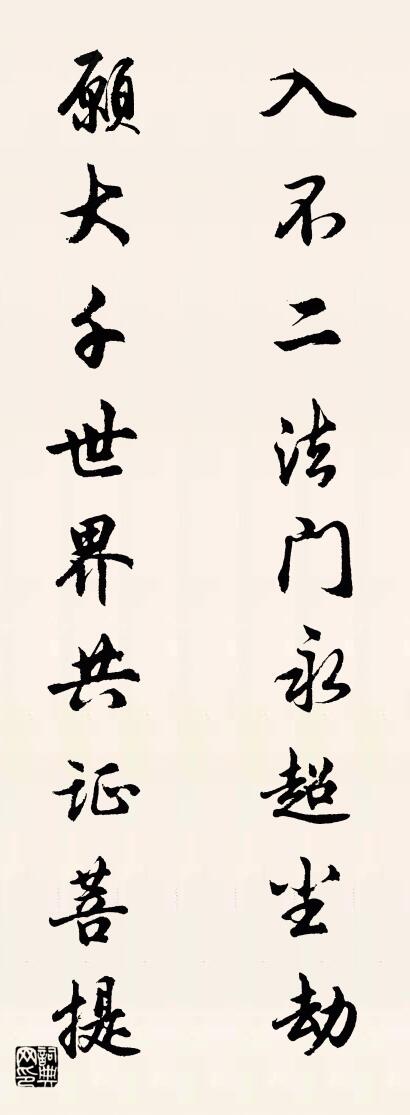 入不二法门永超尘劫
願大千世界共证菩提
詞典网印